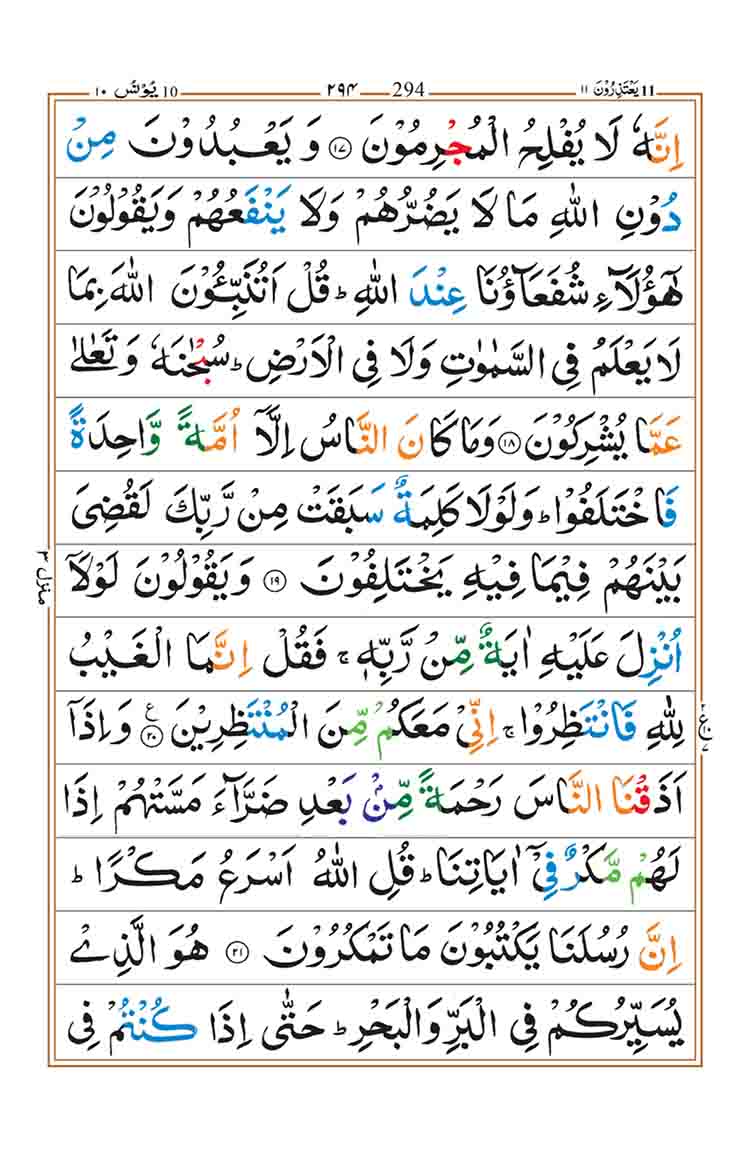 ١٠ يُوْنُس 10 ٢٩٤ 294 يَعْتَذِرُوْنَ ١١ 11
اِنَّهٗ لَا يُفْلِحُ الْمُجْرِمُوْنَ ۝١٧ وَ يَعْبُدُوْنَ مِنْ
دُوْنِ اللّٰهِ مَا لَا يَضُرُّهُمْ وَلَا يَنْفَعُهُمْ وَيَقُوْلُوْنَ
هٰٓؤُلَآءِ شُفَعَآؤُنَا عِنْدَ اللّٰهِ ؕ قُلْ اَتُنَبِّـُٔوْنَ اللّٰهَ بِمَا
لَا يَعْلَمُ فِى السَّمٰوٰتِ وَلَا فِى الْاَرْضِ ؕ سُبْحٰنَهٗ وَ تَعٰلٰى
عَمَّا يُشْرِكُوْنَ ۝١٨ وَمَا كَانَ النَّاسُ اِلَّاۤ اُمَّةً وَّاحِدَةً
فَاخْتَلَفُوْا ؕ وَلَوْلَا كَلِمَةٌ سَبَقَتْ مِنْ رَّبِّكَ لَقُضِىَ
بَيْنَهُمْ فِيْمَا فِيْهِ يَخْتَلِفُوْنَ ۝١٩ وَيَقُوْلُوْنَ لَوْلَاۤ
اُنْزِلَ عَلَيْهِ اٰيَةٌ مِّنْ رَّبِّهٖ ۚ فَقُلْ اِنَّمَا الْغَيْبُ
لِلّٰهِ فَانْتَظِرُوْا ۚ اِنِّىْ مَعَكُمْ مِّنَ الْمُنْتَظِرِيْنَ ۝٢٠ ع وَ اِذَاۤ
اَذَقْنَا النَّاسَ رَحْمَةً مِّنْۢ بَعْدِ ضَرَّآءَ مَسَّتْهُمْ اِذَا
لَهُمْ مَّكْرٌ فِىْۤ اٰيَاتِنَا ؕ قُلِ اللّٰهُ اَسْرَعُ مَكْرًا ؕ
اِنَّ رُسُلَنَا يَكْتُبُوْنَ مَا تَمْكُرُوْنَ ۝٢١ هُوَ الَّذِىْ
يُسَيِّرُكُمْ فِى الْبَرِّ وَالْبَحْرِ ؕ حَتّٰۤى اِذَا كُنْتُمْ فِى
منزل ٣